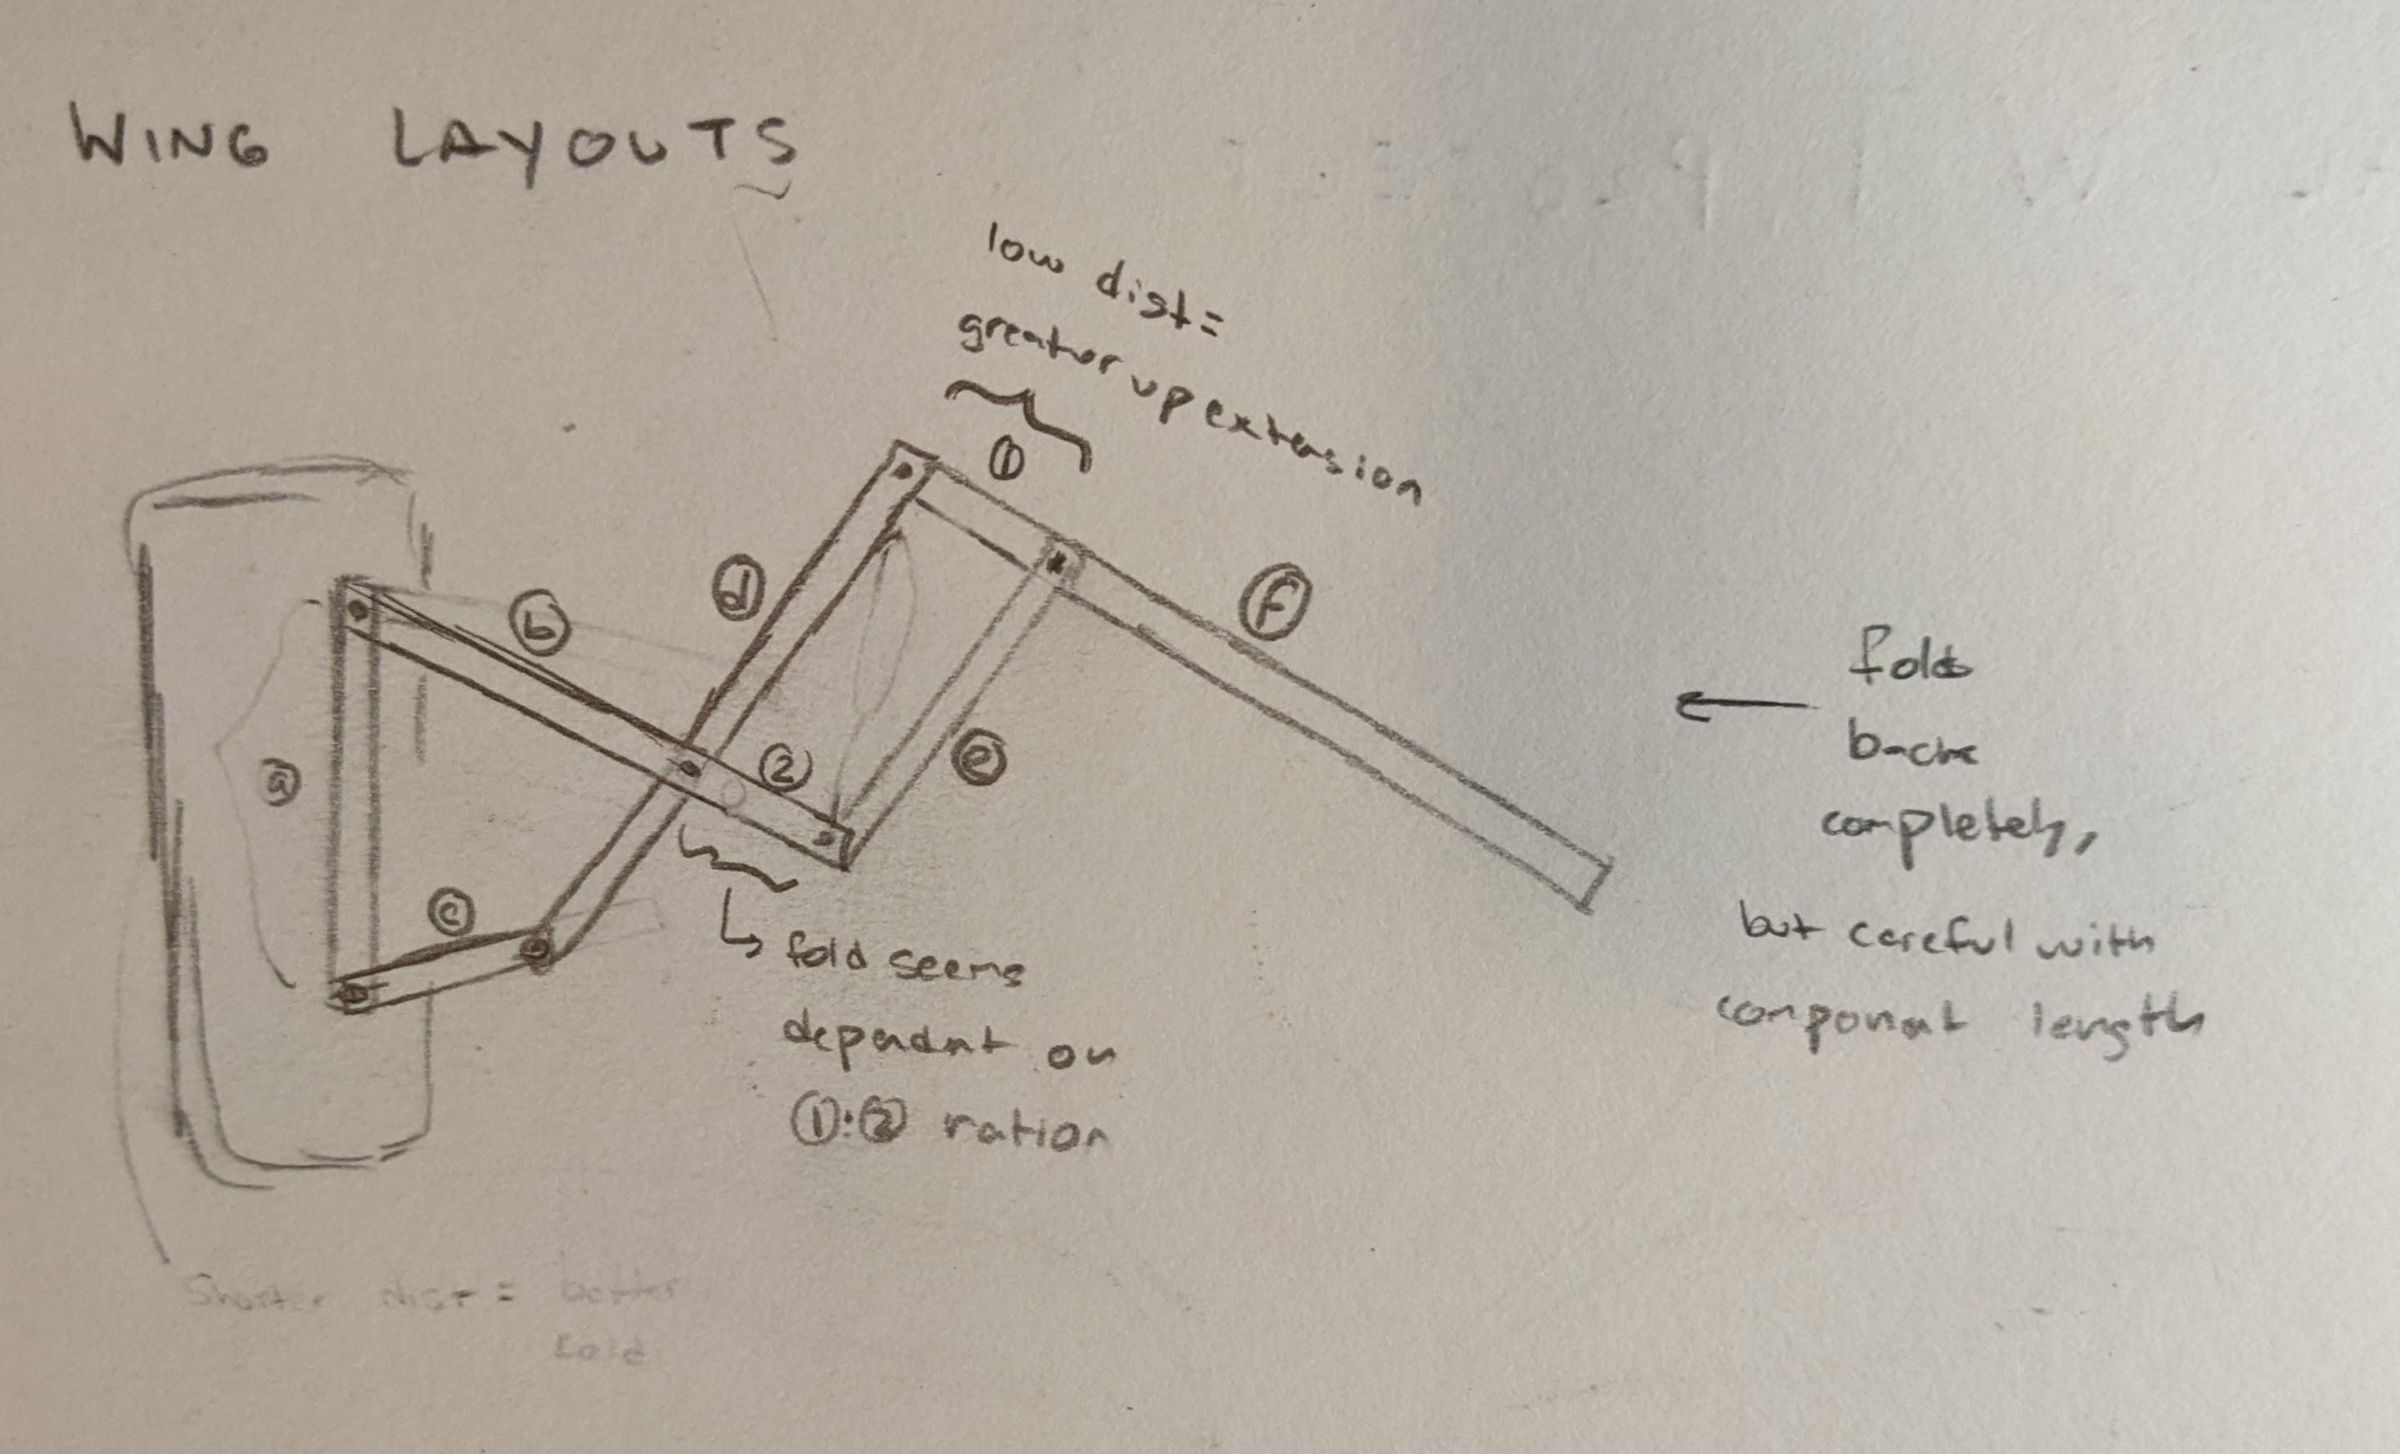 WING LAYOUTS
low dist =
greater up extension
①
ⓓ
ⓑ
ⓕ
②
ⓔ
ⓐ
ⓒ
folds
back
completely,
but careful with
component length
↳ fold seems
dependant on
①:② ration
Shorter dist = better
fold